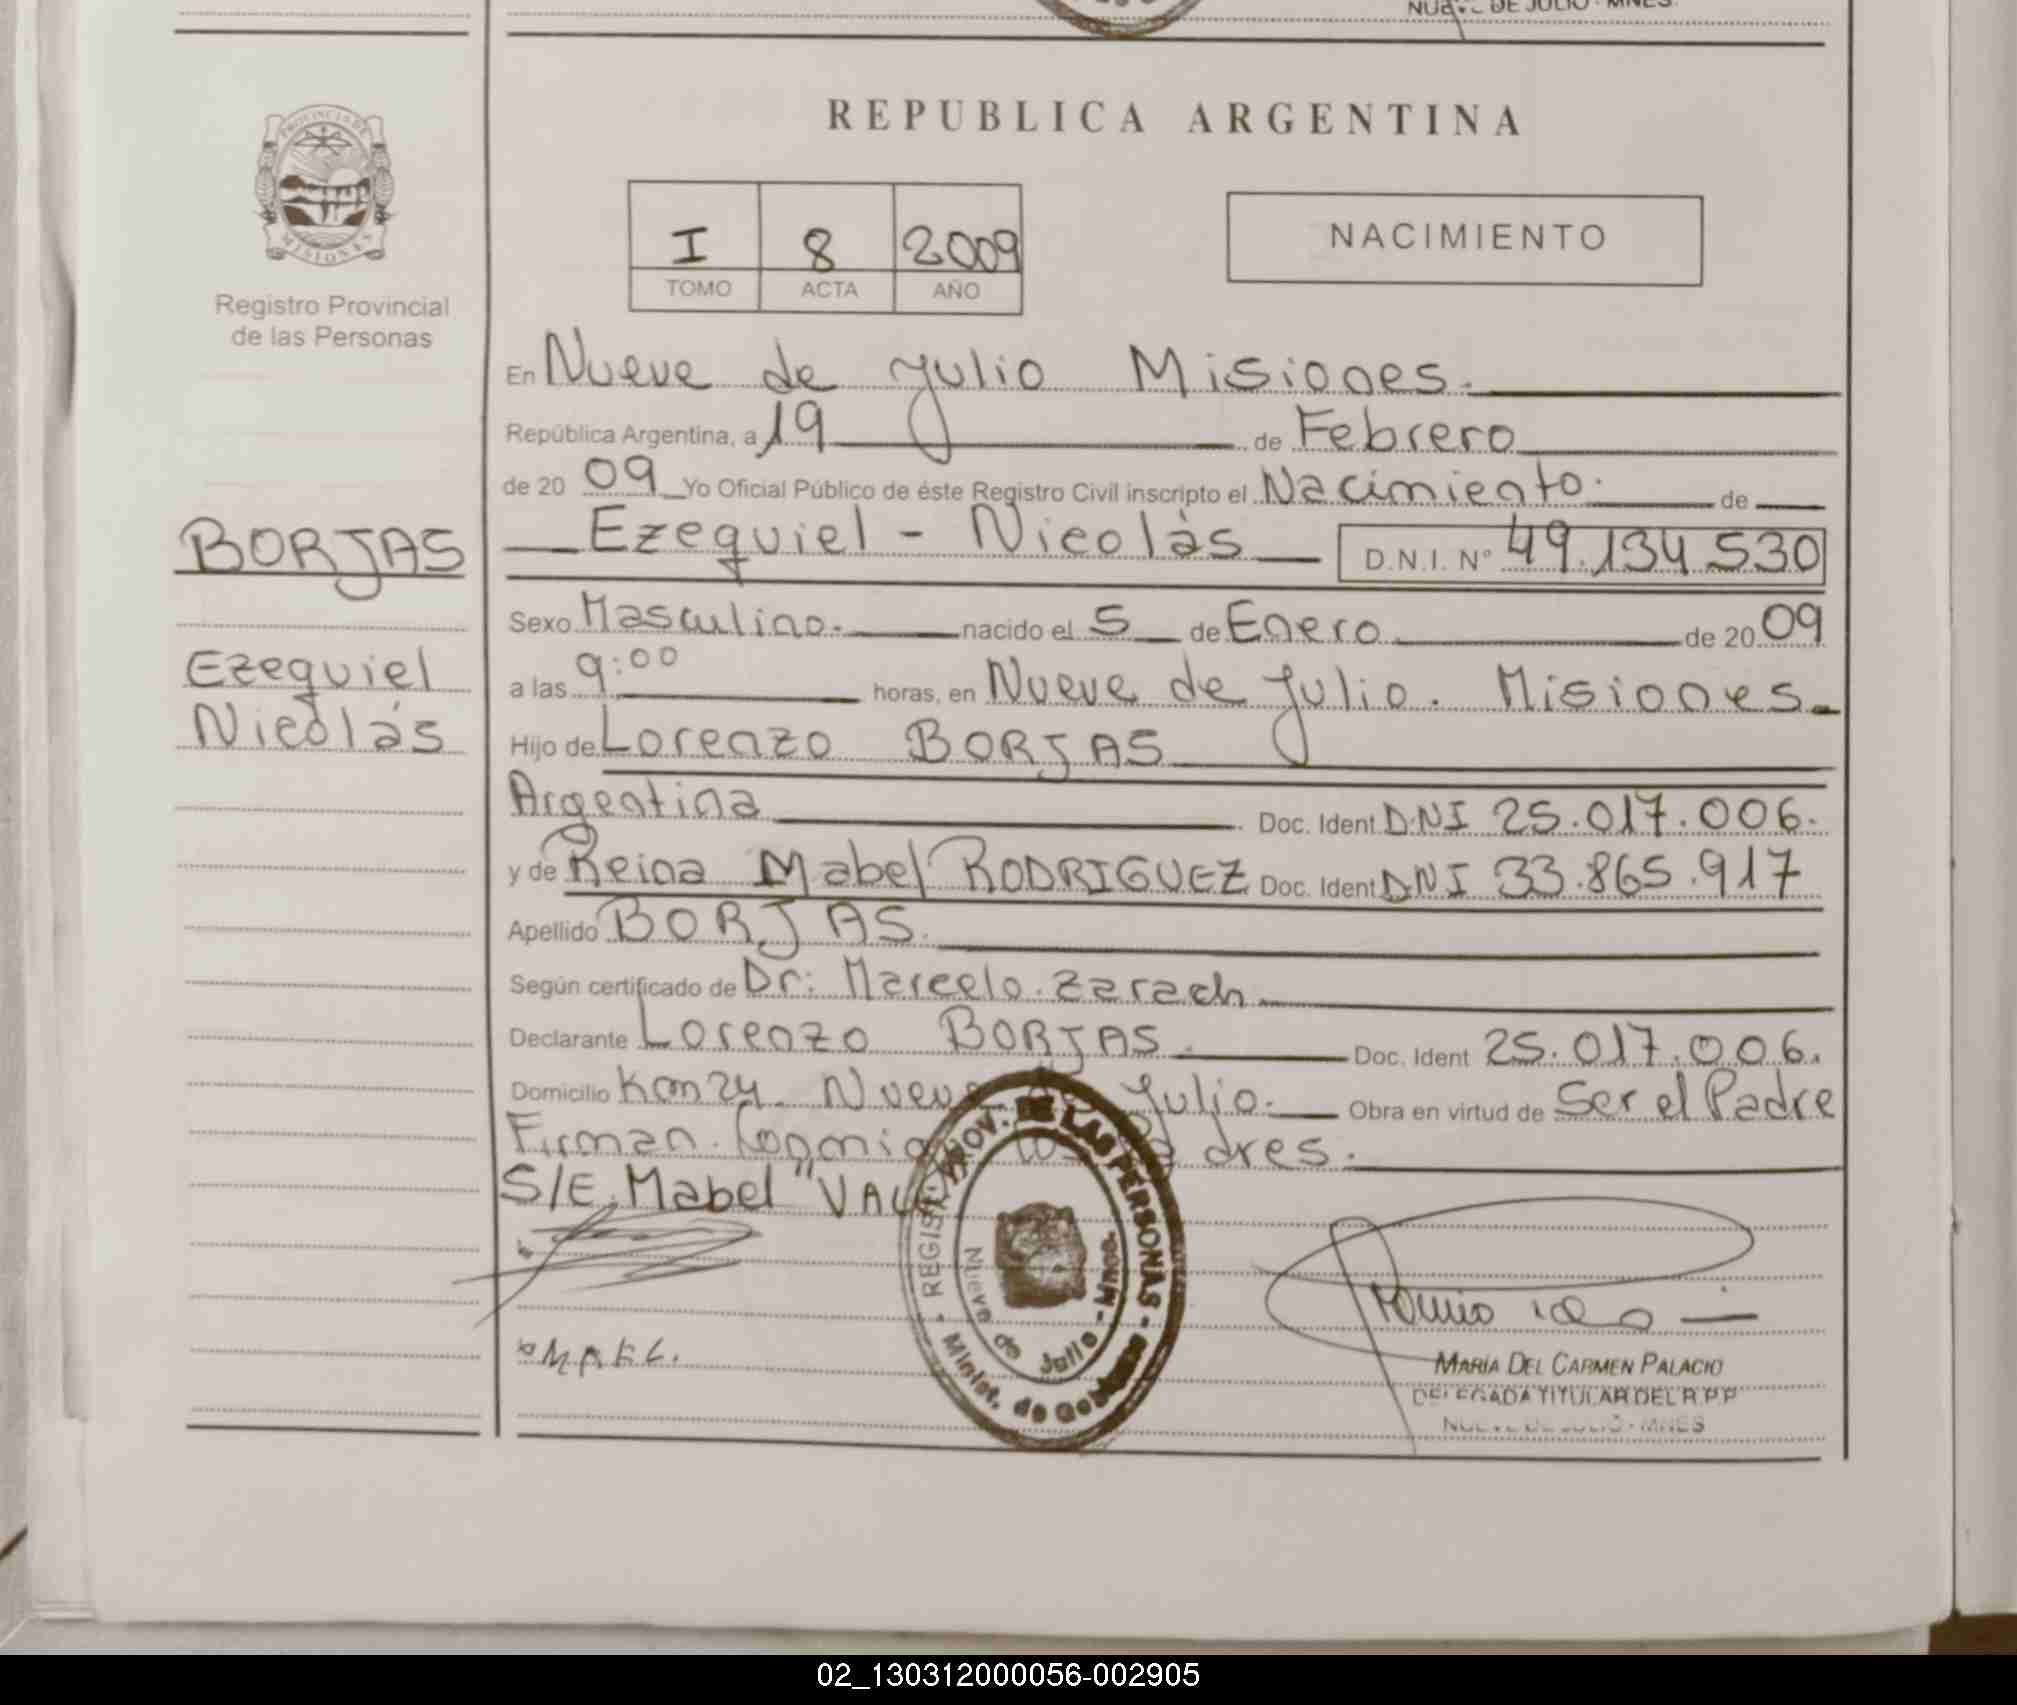 NUEVE DE JULIO - MNES.
PROVINCIA DE
MISIONES
Registro Provincial
de las Personas
REPUBLICA ARGENTINA
I 8 2009
TOMO ACTA AÑO
NACIMIENTO
En Nueve de Julio Misiones.
República Argentina, a 19 de Febrero
de 20 09 Yo Oficial Público de éste Registro Civil inscripto el Nacimiento. de
BORJAS
Ezequiel - Nicolàs D.N.I. Nº 49.134 530
Sexo Masculino. nacido el 5 de Enero de 20 09
Ezequiel
Nicolás
a las 9:00 horas, en Nueve de Julio. Misiones.
Hijo de Lorenzo BORJAS
Argentina Doc. Ident DNI 25.017.006.
y de Reina Mabel RODRIGUEZ Doc. Ident DNI 33.865.917
Apellido BORJAS.
Según certificado de Dr: Marcelo. Zarach
Declarante Lorenzo BORJAS. Doc. Ident 25.017.006.
Domicilio Km 24. Nueve de Julio. Obra en virtud de Ser el Padre
Firman. Conmigo los Padres.
S/E. Mabel "VALE
REGIST. PROV. DE LAS PERSONAS - Minist. de Gobierno
Nueve de Julio - Mnes.
MARÍA DEL CARMEN PALACIO
DELEGADA TITULAR DEL R.P.P
NUEVE DE JULIO - MNES
02_130312000056-002905